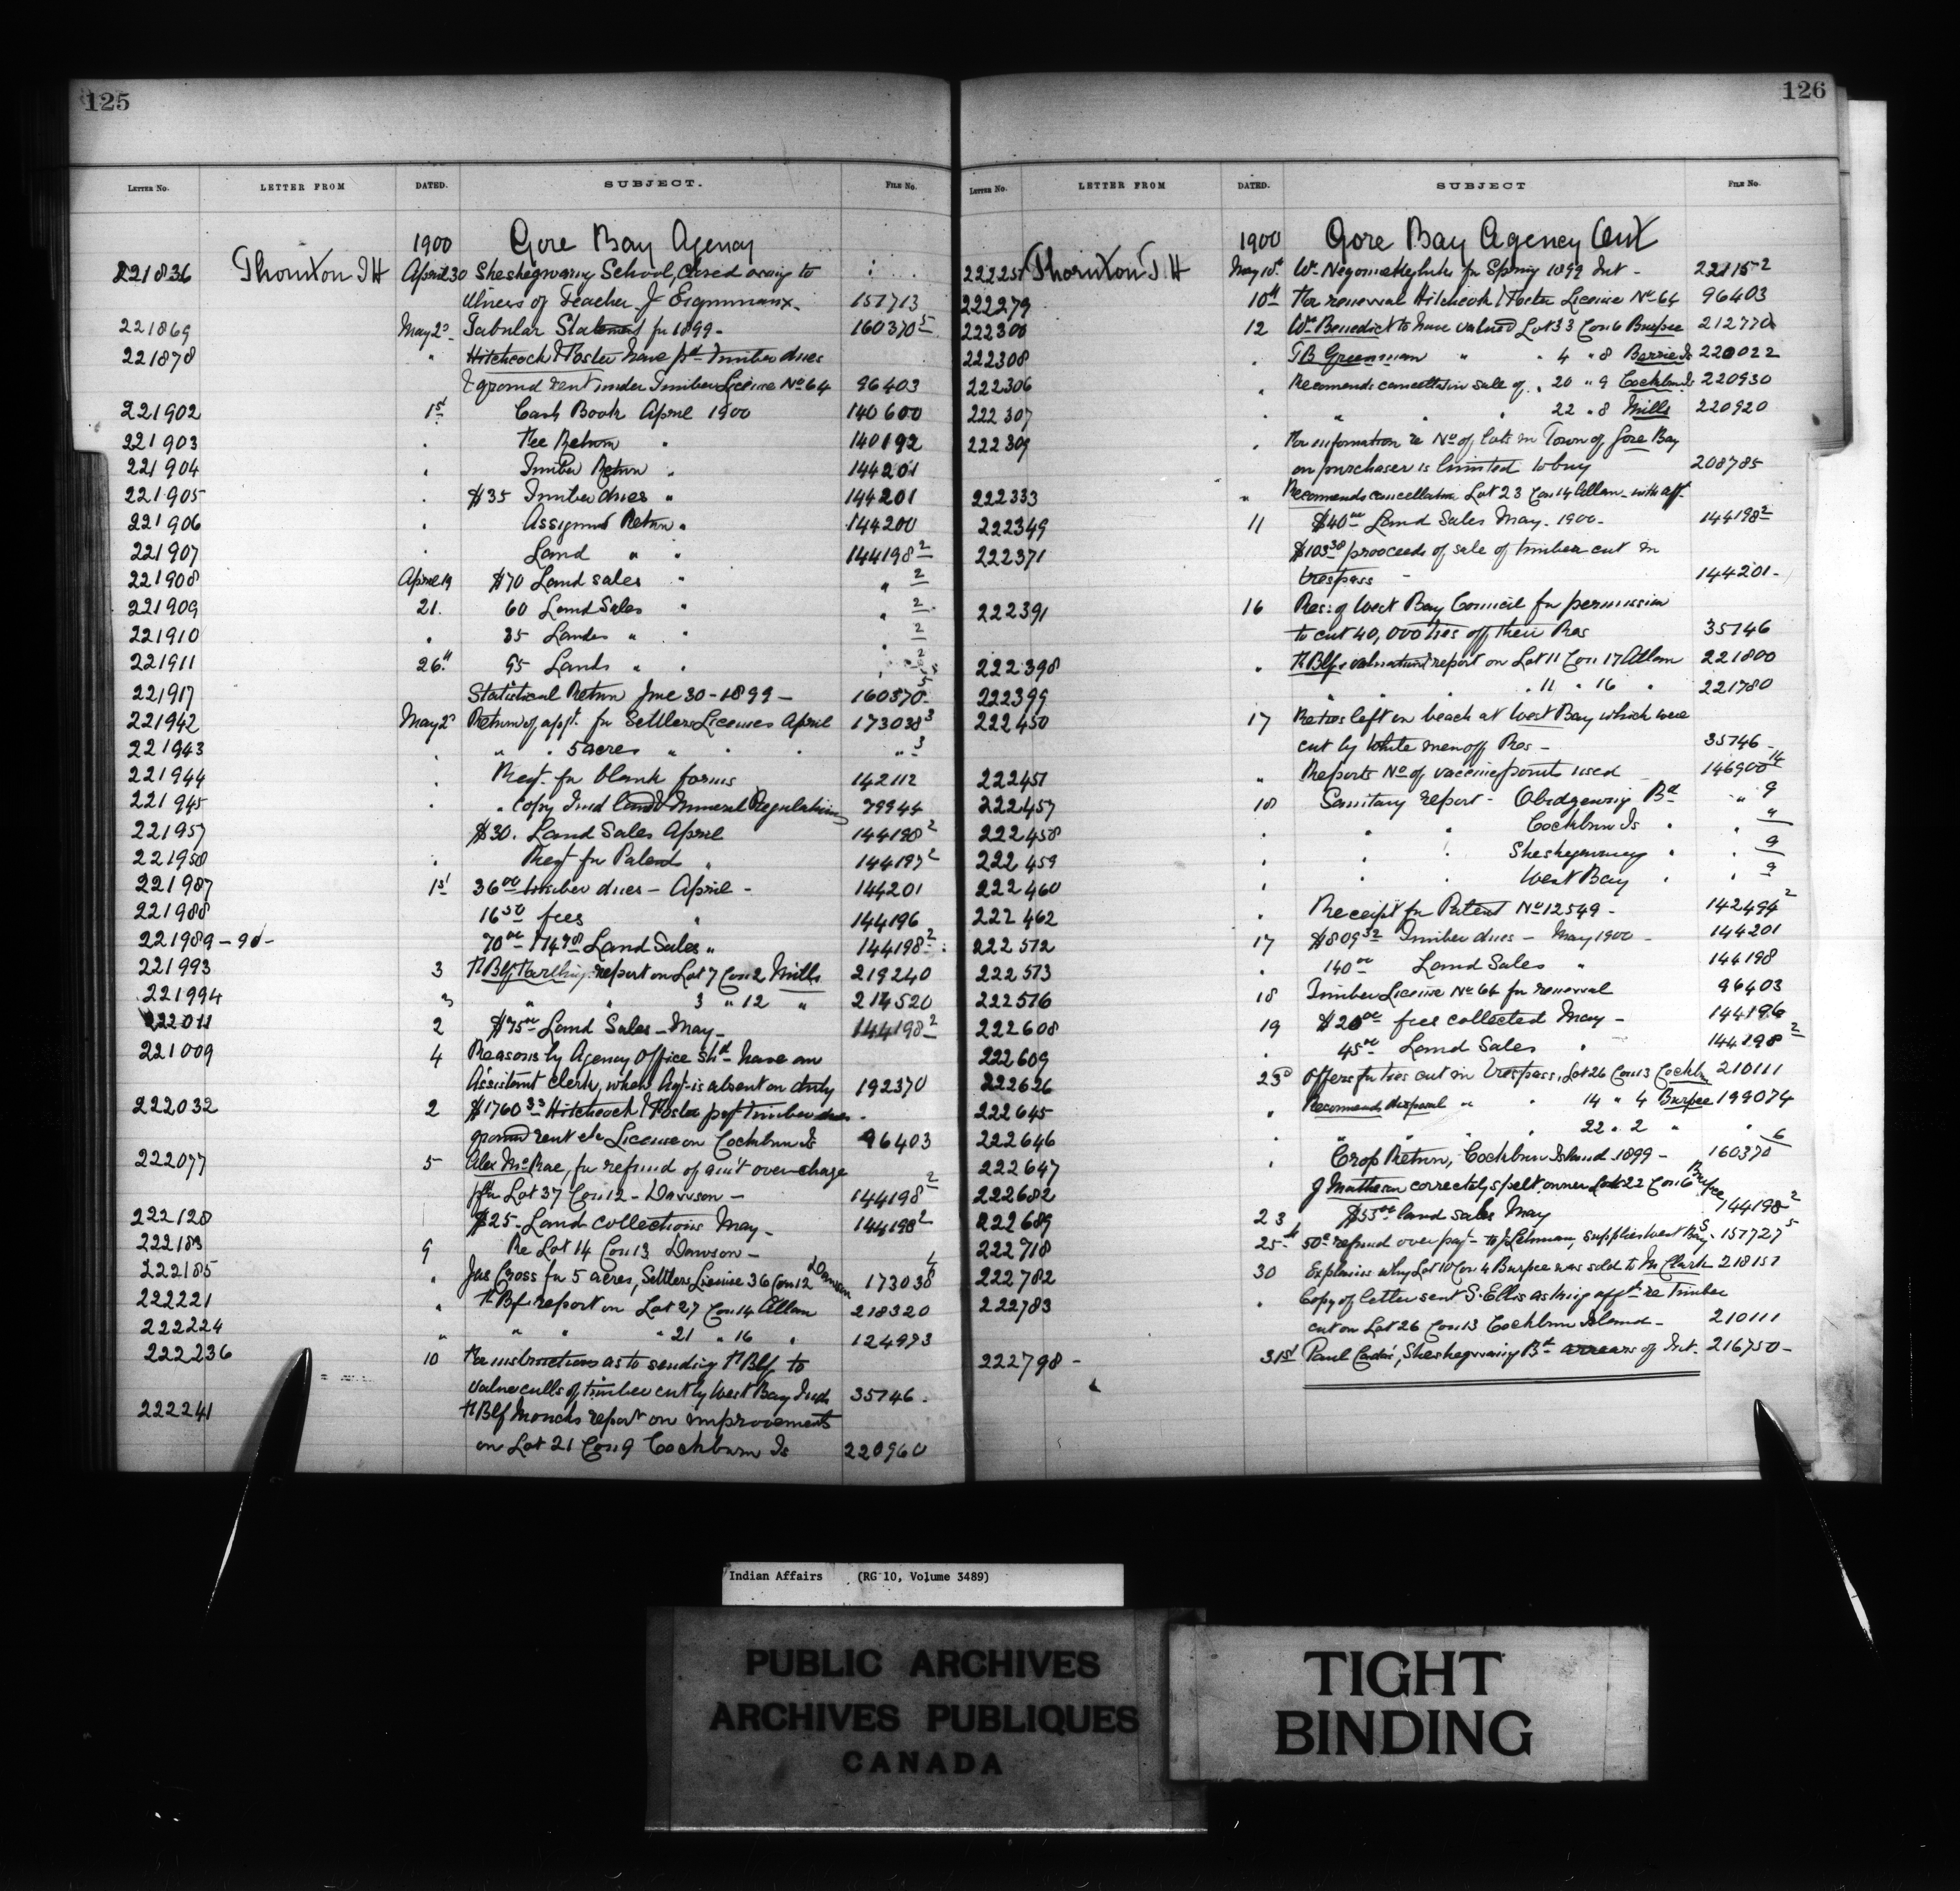 125
LETTER No. LETTER FROM DATED. SUBJECT. FILE No.
1900 Gore Bay Agency
221836 Thornton J H April 30 Sheshegwaning School, closed owing to
illness of Teacher J 151713
221869 May 2d Tabular Statement for 1899 - 160370 5
221878 " Hitchcock & Foster have pd timber dues
& ground rent under Timber License No 64 96403
221902 1st Cash Book April 1900 140600
221903 " Fee Return " 140192
221904 " Timber Return " 144201
221905 " $35 Timber dues " 144201
221906 " Assignmt Return " 144200
221907 " Land " " 144198 2
221908 April 19 $70 Land sales " " 2
221909 21. 60 Land Sales " " 2
221910 " 35 Lands " " " 2
221911 26th 95 Lands " " " 2
221917 Statistical Return June 30 - 1899 - 160370 5
221942 May 2d Return of appt. for Settlers Licenses April 173038 3
221943 " " " 5 acres " " " " 3
221944 " Reqt. for blank forms 142112
221945 " " copy Ind Land & Mineral Regulations 79944
221957 $30. Land Sales April 144198 2
221958 " Reqt for Patents " 144197 2
221987 1st 36 00 timber dues - April - 144201
221988 16 50 fees " 144196
221989 - 90 - 70 00 & 14 98 Land Sales " 144198 2
221993 3 report on Lot 7 Con 2 Mills 219240
221994 3 " " 3 " 12 " 214520
222011 2 $75 00 Land Sales - May - 144198 2
221009 4 Reasons by Agency Office shd have an
Assistant clerk, when Agt is absent on duty 192370
222032 2 $1760 33 Hitchcock & Foster pt timber dues
ground rent etc License on Cockburn Is 96403
222077 5 Alex McRae, for refund of am't over-charge
for Lot 37 Con 12 - Dawson - 144198 2
222128 $25 - Land collections May - 144198 2
222183 9 Re Lot 14 Con 13 Dawson -
222185 " Jas Cross for 5 acres, Settlers License 36 Con 12 Dawson 173038 4
222221 " report on Lot 27 Con 14 Allan 218320
222224 " " " " 21 " 16 " 124993
222236 10 For instructions as to sending to
value culls of timber cut by West Bay Inds 35746.
222241 report on improvements
on Lot 21 Con 9 Cockburn Is 220960
126
LETTER No. LETTER FROM DATED. SUBJECT FILE No.
1900 Gore Bay Agency Cont
222251 Thornton J. H May 10th Wm for Spring 1899 Int - 221152
222279 10th For renewal Hitchcock & Foster License No 64 96403
222300 12 Wm Benedict to have valued Lot 33 Con 6 Burpee 212770
222308 " " " 4 " 8 Barrie Is 220022
222306 " Recomends cancellation sale of " 20 " 9 Cockburn Is 220930
222307 " " " 22 " 8 Mills 220920
222309 " For information re No of lots in Town of Gore Bay
an purchaser is limited to buy 208785
222333 " Recomends cancellation Lot 23 Con 14 Allan - with aff.
222349 11 $40 00 Land Sales May. 1900 - 144198 2
222371 $103 38 prooceeds of sale of timber cut in
trespass - 144201 -
222391 16 Res: of West Bay Council for permission
to cut 40,000 ties off their Res 35746
222398 " valuation report on Lot 11 Con 17 Allan 221800
222399 " " " " 11 " 16 " 221780
222450 17 Re ties left on beach at West Bay which were
cut by White men off Res - 35746 -
222451 " Reports No of vaccine points used 146900 14
222457 18 Sanitary report - Obidgewing Bd " 9
222458 " " " Cockburn Is " " "
222459 " " " Sheshegwaning " " 9
222460 " " " West Bay " " 9
222462 " Receipt for Patent No 12549 - 142494 2
222512 17 $809 32 Timber dues - May 1900 - 144201
222513 " 140 00 Land Sales " 144198
222516 18 Timber License No 64 for renewal 96403
222608 19 $20 00 fees collected May - 144196
222609 " 45 00 Land Sales " 144198 2
222626 23d Offers for ties cut in trespass, Lot 26 Con 13 Cockbn 210111
222645 " Recomends disposal " " 14 " 4 Burpee 199074
222646 " " " " 22 " 2 " " 6
222647 " Crop Return, Cockburn Island 1899 - 160370
222682 J Matheson correctly spelt. owner Lot 22 Con 6 Burpee
222689 23 $53 00 land sales May 144198 2
222718 25th 50c refund over pay - to J Lehman, supplies West Bay - 157727 5
222782 30 Explains why Lot 10 Con 4 Burpee was sold to M Clark 218151
222783 " Copy of letter sent S. Ellis asking afft re Timber
cut on Lot 26 Con 13 Cockburn Island - 210111
222798 - 31st Paul , Sheshegwaning Bd arrears of Int. 216750 -
Indian Affairs (RG 10, Volume 3489)
PUBLIC ARCHIVES
ARCHIVES PUBLIQUES
CANADA
TIGHT
BINDING